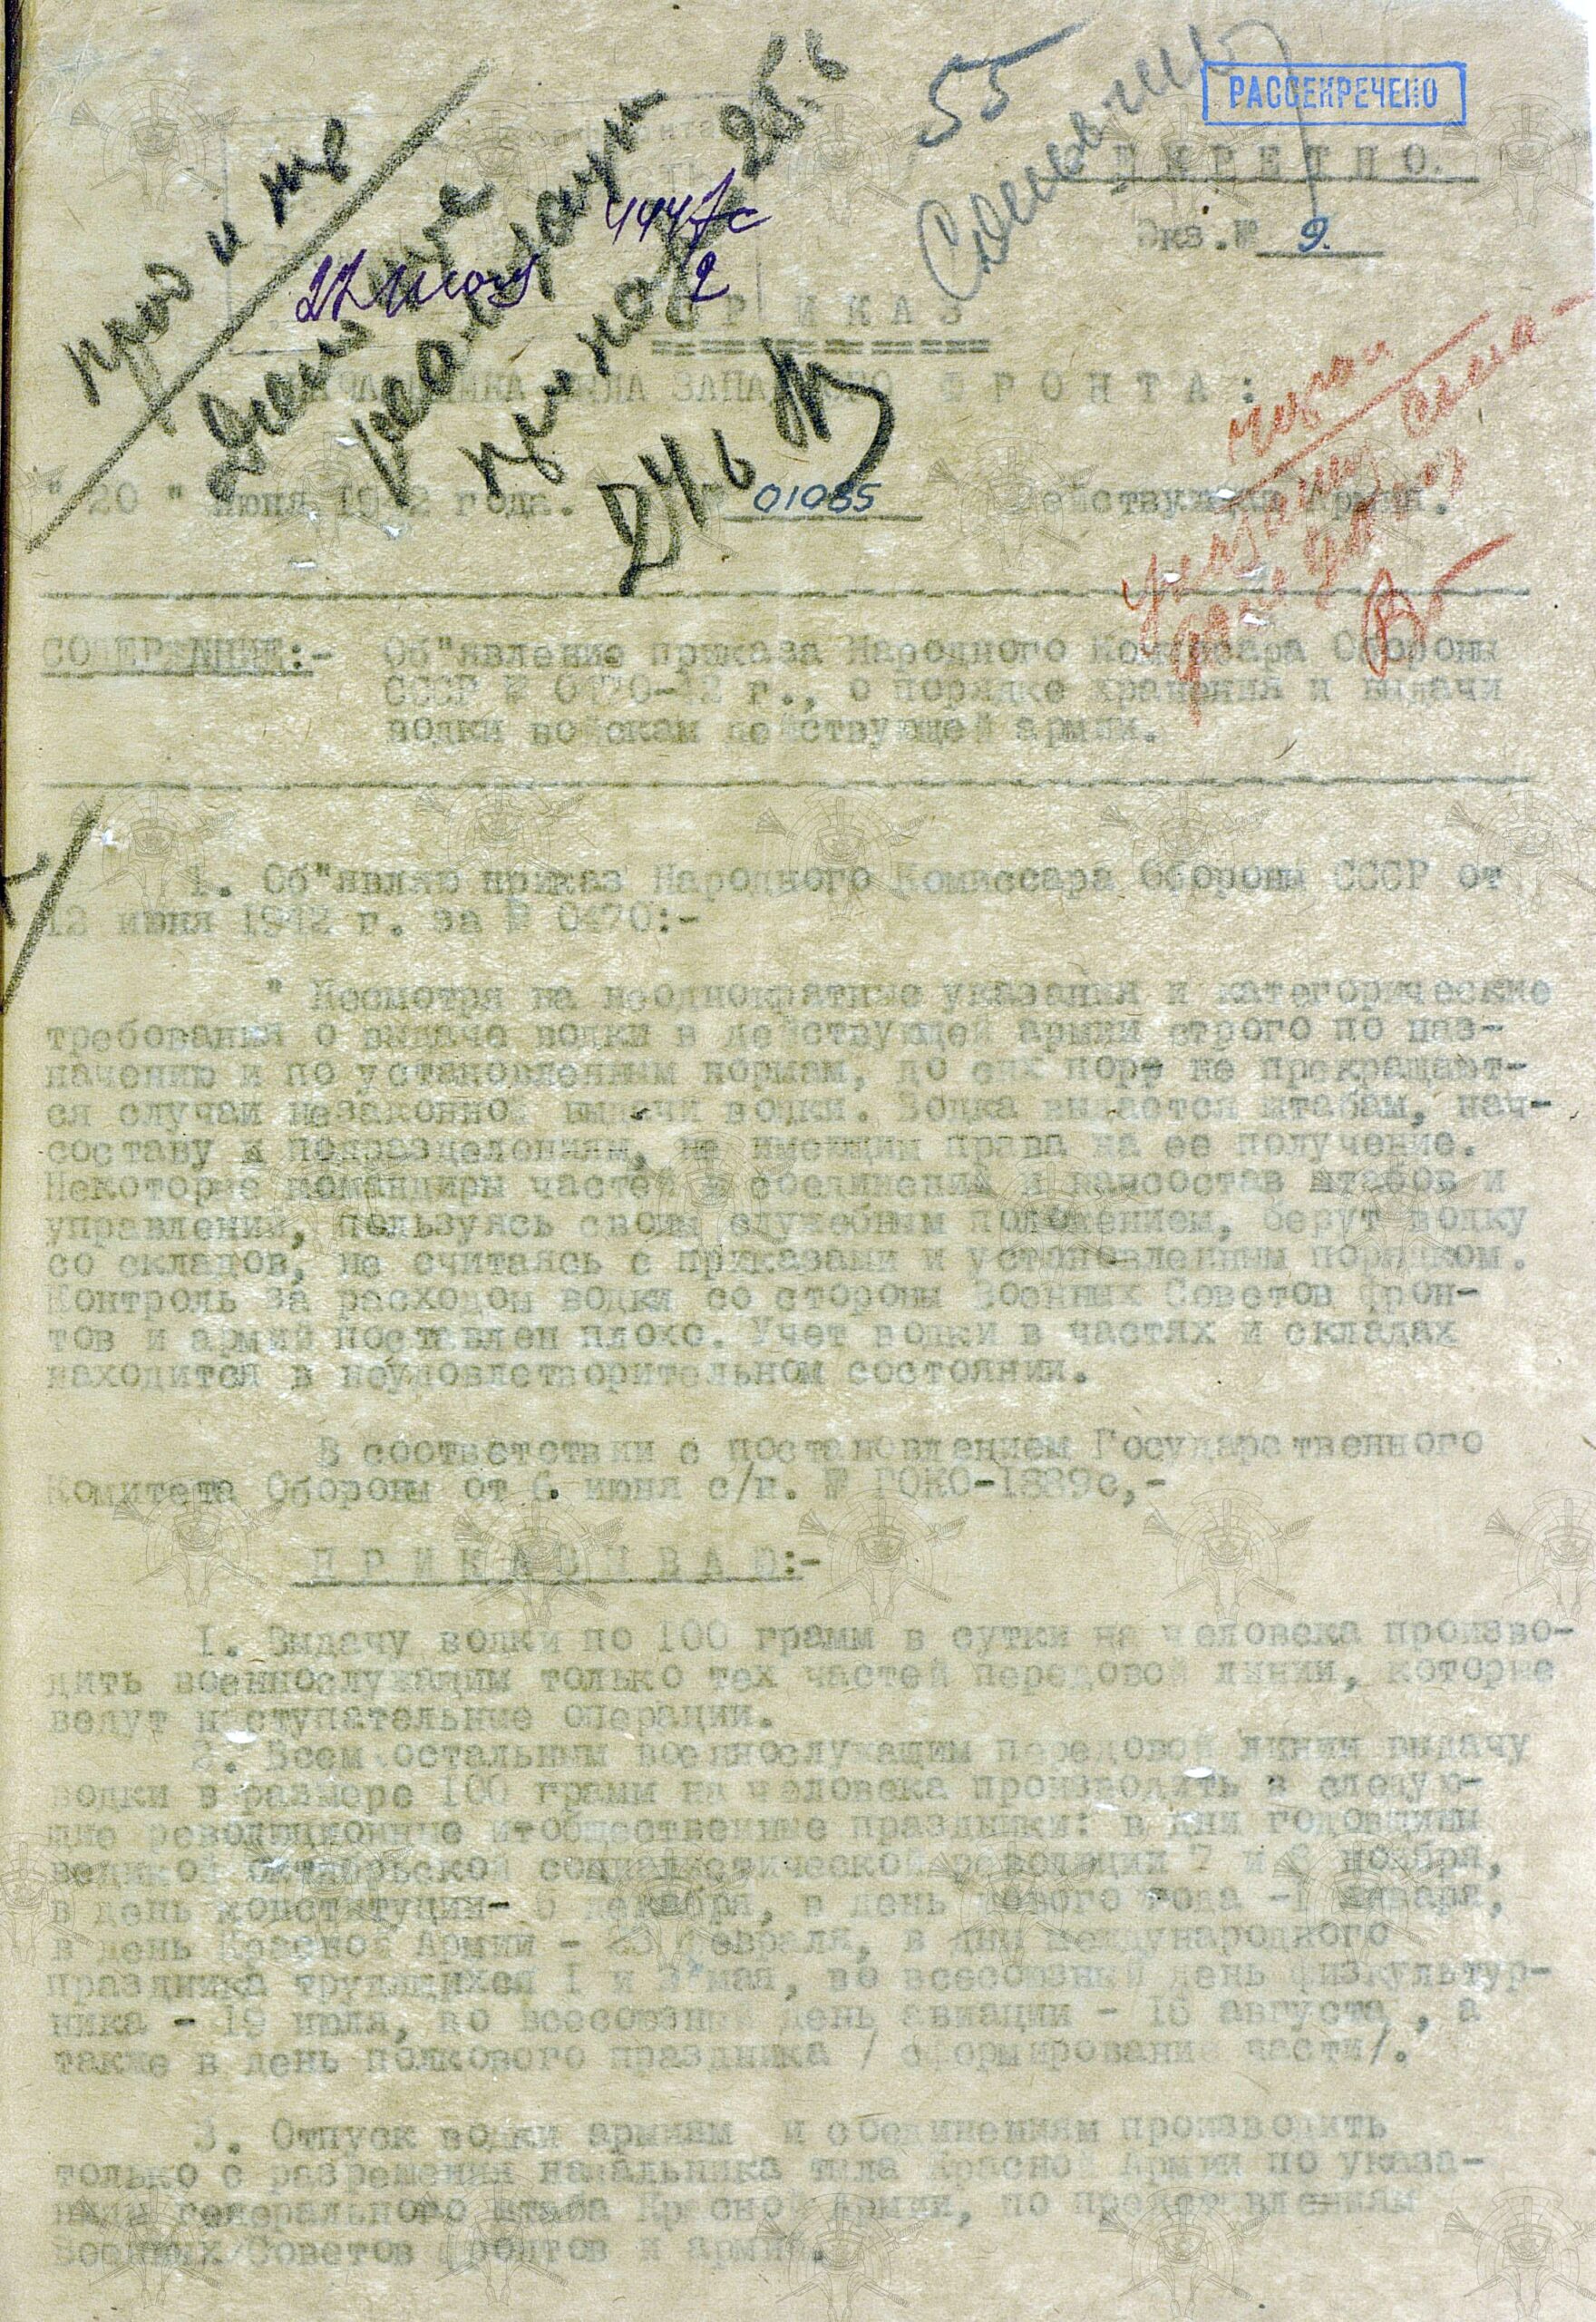 55
РАССЕКРЕЧЕНО
СЕКРЕТНО.
Экз.№ 9.
4447с
27 июня 2
ПРИКАЗ
НАЧАЛЬНИКА ТЫЛА ЗАПАДНОГО ФРОНТА:
"20" июня 1942 года. № 01085 Действующая Армия.
СОДЕРЖАНИЕ:- Об"явление приказа Народного Комиссара Обороны
СССР № 0470-42 г., о порядке хранения и выдачи
водки войскам действующей армии.
1. Об"являю приказ Народного Комиссара Обороны СССР от
12 июня 1942 г. за № 0470:-
" Несмотря на неоднократные указания и категорические
требования о выдаче водки в действующей армии строго по наз-
начению и по установленным нормам, до сих пор не прекращают-
ся случаи незаконной выдачи водки. Водка выдается штабам, нач-
составу и подразделениям, не имеющим права на ее получение.
Некоторые командиры частей и соединений и начсостав штабов и
управлений, пользуясь своим служебным положением, берут водку
со складов, не считаясь с приказами и установленным порядком.
Контроль за расходом водки со стороны Военных Советов фрон-
тов и армий поставлен плохо. Учет водки в частях и складах
находится в неудовлетворительном состоянии.
В соответствии с постановлением Государственного
Комитета Обороны от 6 июня с/г. № ГОКО-1889с,-
ПРИКАЗЫВАЮ:-
1. Выдачу водки по 100 грамм в сутки на человека произво-
дить военнослужащим только тех частей передовой линии, которые
ведут наступательные операции.
2. Всем остальным военнослужащим передовой линии выдачу
водки в размере 100 грамм на человека производить в следую-
щие революционные и общественные праздники: в дни годовщины
великой октябрьской социалистической революции 7 и 8 ноября,
в день конституции- 5 декабря, в день нового года -1 января,
в день Красной Армии - 23 февраля, в дни международного
праздника трудящихся 1 и 2 мая, во всесоюзный день физкультур-
ника - 19 июля, во всесоюзный день авиации - 16 августа, а
также в день полкового праздника / сформирование части/.
3. Отпуск водки армиям и соединениям производить
только с разрешения начальника тыла Красной Армии по указа-
ниям генерального штаба Красной Армии, по представлениям
Военных Советов фронтов и армий.